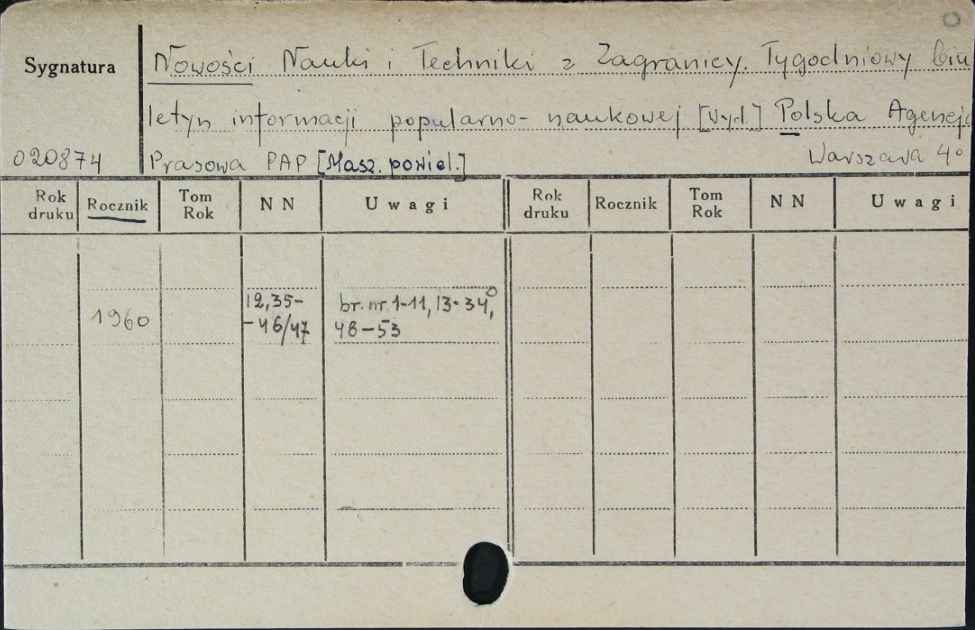 Sygnatura
Nowości Nauki i Techniki z Zagranicy. Tygodniowy biu
letyn informacji popularno-naukowej [Wyd.] Polska Agencja
020874 Prasowa PAP [Masz. powiel.] Warszawa 4°
Rok druku Rocznik Tom Rok N N Uwagi Rok druku Rocznik Tom Rok N N Uwagi
12,35- br. nr 1-11, 13-34,
1960 -46/47 48-53